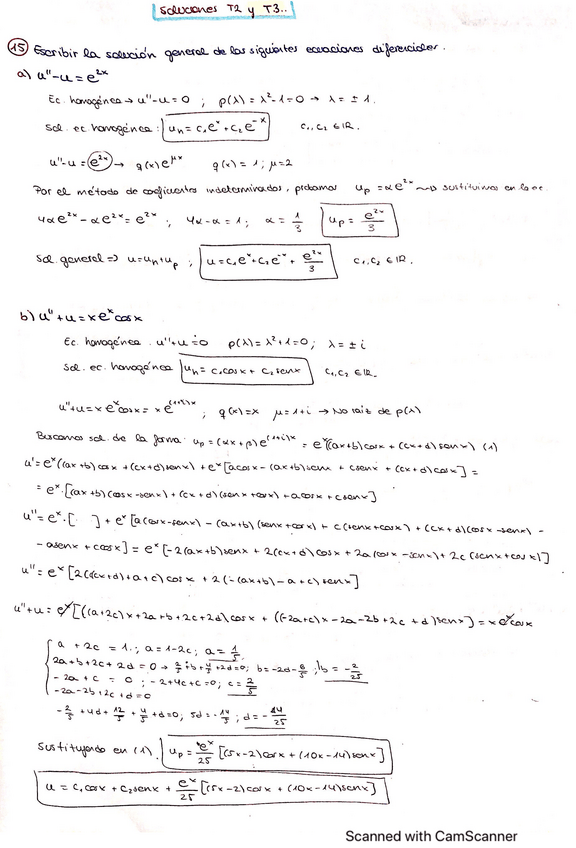 Soluciones T2 y T3..
(15) Escribir la solución general de las siguientes ecuaciones diferenciales.
a) u'' - u = e^{2x}
Ec. homogénea → u'' - u = 0 ; p(λ) = λ² - 1 = 0 → λ = ± 1.
Sol. ec. homogénea: u_h = c₁e^x + c₂e^{-x} c₁, c₂ ∈ ℝ.
u'' - u = e^{2x} → q(x) e^{μx} q(x) = 1 ; μ = 2
Por el método de coeficientes indeterminados, probamos u_p = αe^{2x} ⇝ sustituimos en la ec.
4αe^{2x} - αe^{2x} = e^{2x} ; 4α - α = 1 ; α = 1/3 u_p = e^{2x}/3
Sol. general ⇒ u = u_h + u_p ; u = c₁e^x + c₂e^{-x} + e^{2x}/3 c₁, c₂ ∈ ℝ.
b) u'' + u = x e^x cos x
Ec. homogénea. u'' + u = 0 p(λ) = λ² + 1 = 0 ; λ = ± i
Sol. ec. homogénea u_h = c₁cos x + c₂ sen x c₁, c₂ ∈ ℝ.
u'' + u = x e^x cos x = x e^{(1+i)x} ; q(x) = x μ = 1+i → No raíz de p(λ)
Buscamos sol. de la forma: u_p = (αx + β) e^{(1+i)x} = e^x((ax+b) cos x + (cx+d) sen x) (1)
u' = e^x((ax+b) cos x + (cx+d) sen x) + e^x [a cos x - (ax+b) sen x + c sen x + (cx+d) cos x] =
= e^x · [(ax+b)(cos x - sen x) + (cx+d)(sen x + cos x) + a cos x + c sen x]
u'' = e^x · [ ] + e^x [a(cos x - sen x) - (ax+b)(sen x + cos x) + c(sen x + cos x) + (cx+d)(cos x - sen x) -
- a sen x + c cos x] = e^x [-2(ax+b) sen x + 2(cx+d) cos x + 2a(cos x - sen x) + 2c(sen x + cos x)]
u'' = e^x [2((cx+d) + a + c) cos x + 2(-(ax+b) - a + c) sen x]
u'' + u = e^x [((a+2c)x + 2a + b + 2c + 2d) cos x + ((-2a+c)x - 2a - 2b + 2c + d) sen x] = x e^x cos x
a + 2c = 1. ; a = 1 - 2c ; a = 1/5
2a + b + 2c + 2d = 0 → 2/5 + b + 4/5 + 2d = 0 ; b = -2d - 6/5 ; b = -2/25
-2a + c = 0 ; -2 + 4c + c = 0 ; c = 2/5
-2a - 2b + 2c + d = 0
-2/5 + 4d + 12/5 + 4/5 + d = 0 ; 5d = -14/5 ; d = -14/25
Sustituyendo en (1). u_p = e^x/25 [(5x-2) cos x + (10x-14) sen x]
u = c₁ cos x + c₂ sen x + e^x/25 [(5x-2) cos x + (10x-14) sen x]
Scanned with CamScanner